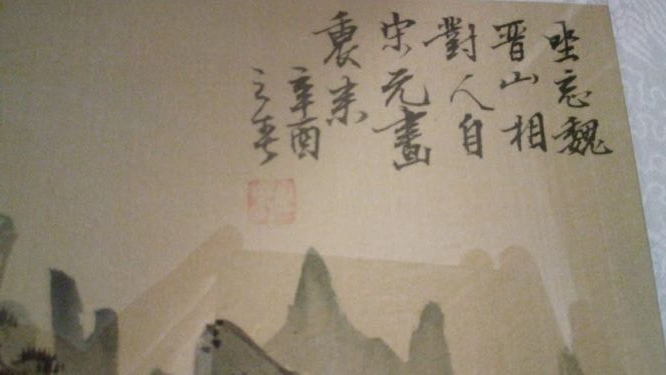 坐忘魏
晋山相
對人自
宋元畫
裏来
辛酉
之春